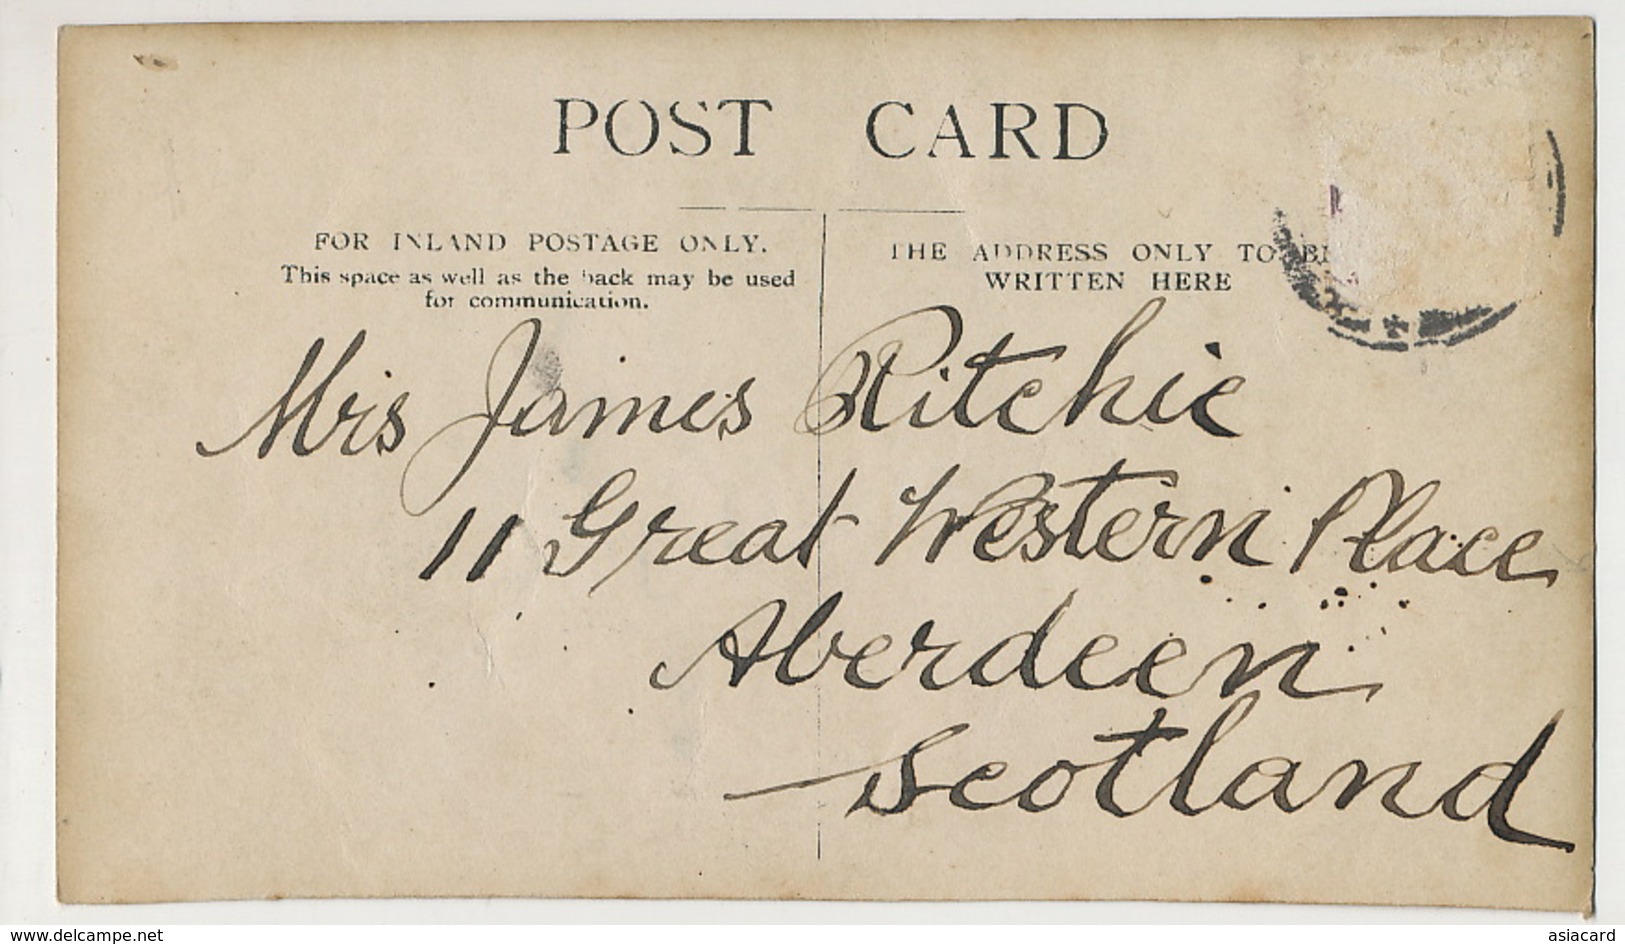 POST CARD
FOR INLAND POSTAGE ONLY.
This space as well as the back may be used
for communication.
THE ADDRESS ONLY TO BE
WRITTEN HERE
Mrs James Ritchie
11 Great Western Place
Aberdeen
Scotland
www.delcampe.net
asiacard